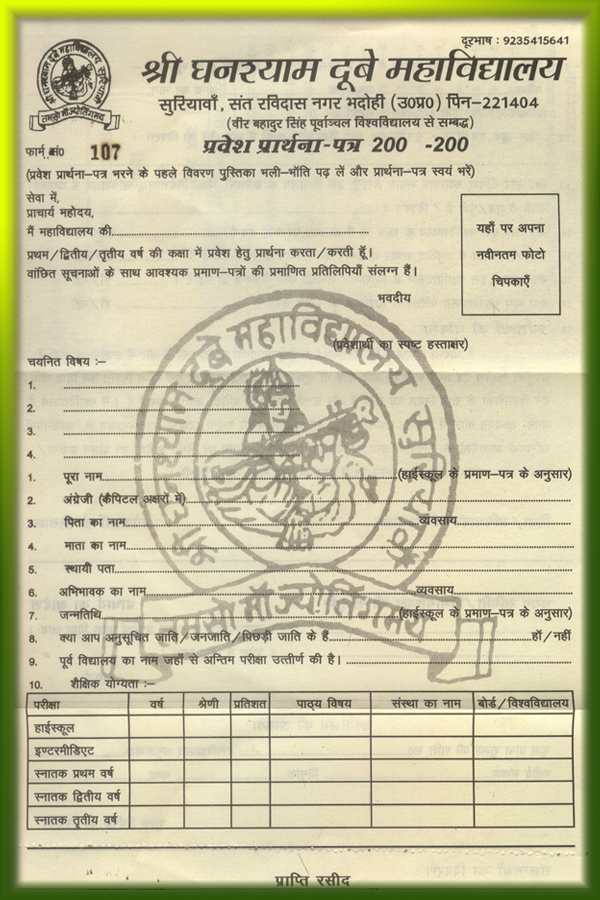 दूरभाष : 9235415641
श्री घनश्याम दूबे महाविद्यालय
सुरियावाँ, संत रविदास नगर भदोही (उ०प्र०) पिन–221404
(वीर बहादुर सिंह पूर्वाञ्चल विश्वविद्यालय से सम्बद्ध)
तमसो माँ ज्योतिर्गमय
फार्म सं० 107
प्रवेश प्रार्थना-पत्र 200 -200
(प्रवेश प्रार्थना–पत्र भरने के पहले विवरण पुस्तिका भली–भाँति पढ़ लें और प्रार्थना–पत्र स्वयं भरें)
सेवा में,
प्राचार्य महोदय,
मैं महाविद्यालय की
प्रथम/द्वितीय/तृतीय वर्ष की कक्षा में प्रवेश हेतु प्रार्थना करता/करती हूँ।
वांछित सूचनाओं के साथ आवश्यक प्रमाण–पत्रों की प्रमाणित प्रतिलिपियाँ संलग्न हैं।
यहाँ पर अपना
नवीनतम फोटो
चिपकाएँ
भवदीय
(प्रवेशार्थी का स्पष्ट हस्ताक्षर)
चयनित विषय :–
1.
2.
3.
4.
1. पूरा नाम (हाईस्कूल के प्रमाण–पत्र के अनुसार)
2. अंग्रेजी (कैपिटल अक्षरों में)
3. पिता का नाम व्यवसाय
4. माता का नाम
5. स्थायी पता
6. अभिभावक का नाम व्यवसाय
7. जन्मतिथि (हाईस्कूल के प्रमाण–पत्र के अनुसार)
8. क्या आप अनुसूचित जाति/जनजाति/पिछड़ी जाति के हैं हाँ/नहीं
9. पूर्व विद्यालय का नाम जहाँ से अन्तिम परीक्षा उत्तीर्ण की है।
10. शैक्षिक योग्यता :–
परीक्षा वर्ष श्रेणी प्रतिशत पाठ्य विषय संस्था का नाम बोर्ड/विश्वविद्यालय
हाईस्कूल
इण्टरमीडिएट
स्नातक प्रथम वर्ष
स्नातक द्वितीय वर्ष
स्नातक तृतीय वर्ष
प्राप्ति रसीद